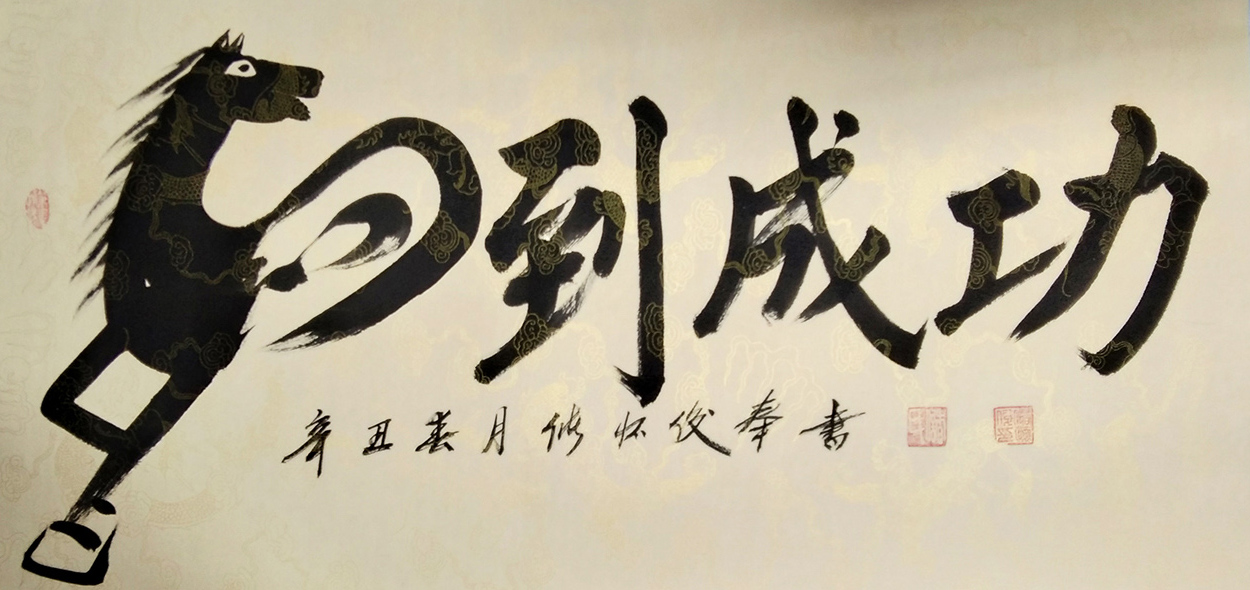 马到成功
辛丑春月 怀俊奉书